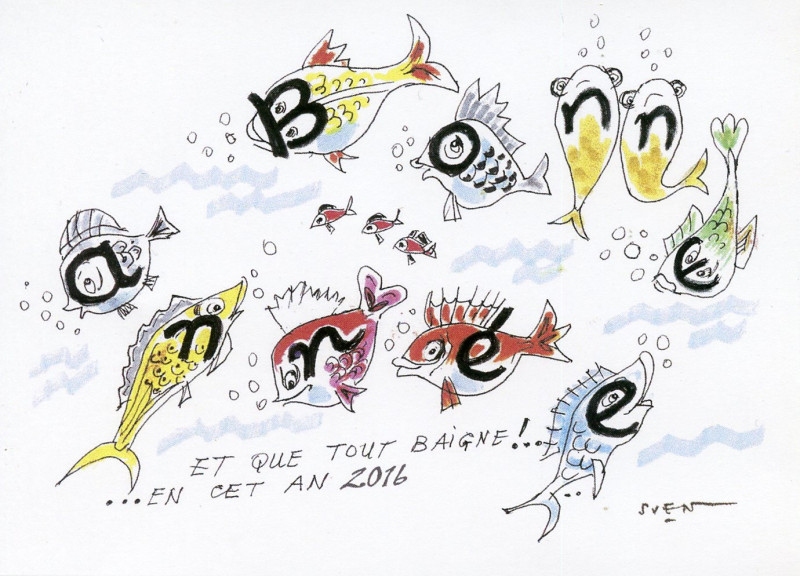 Bonne
année
ET QUE TOUT BAIGNE!..
...EN CET AN 2016
SVEN